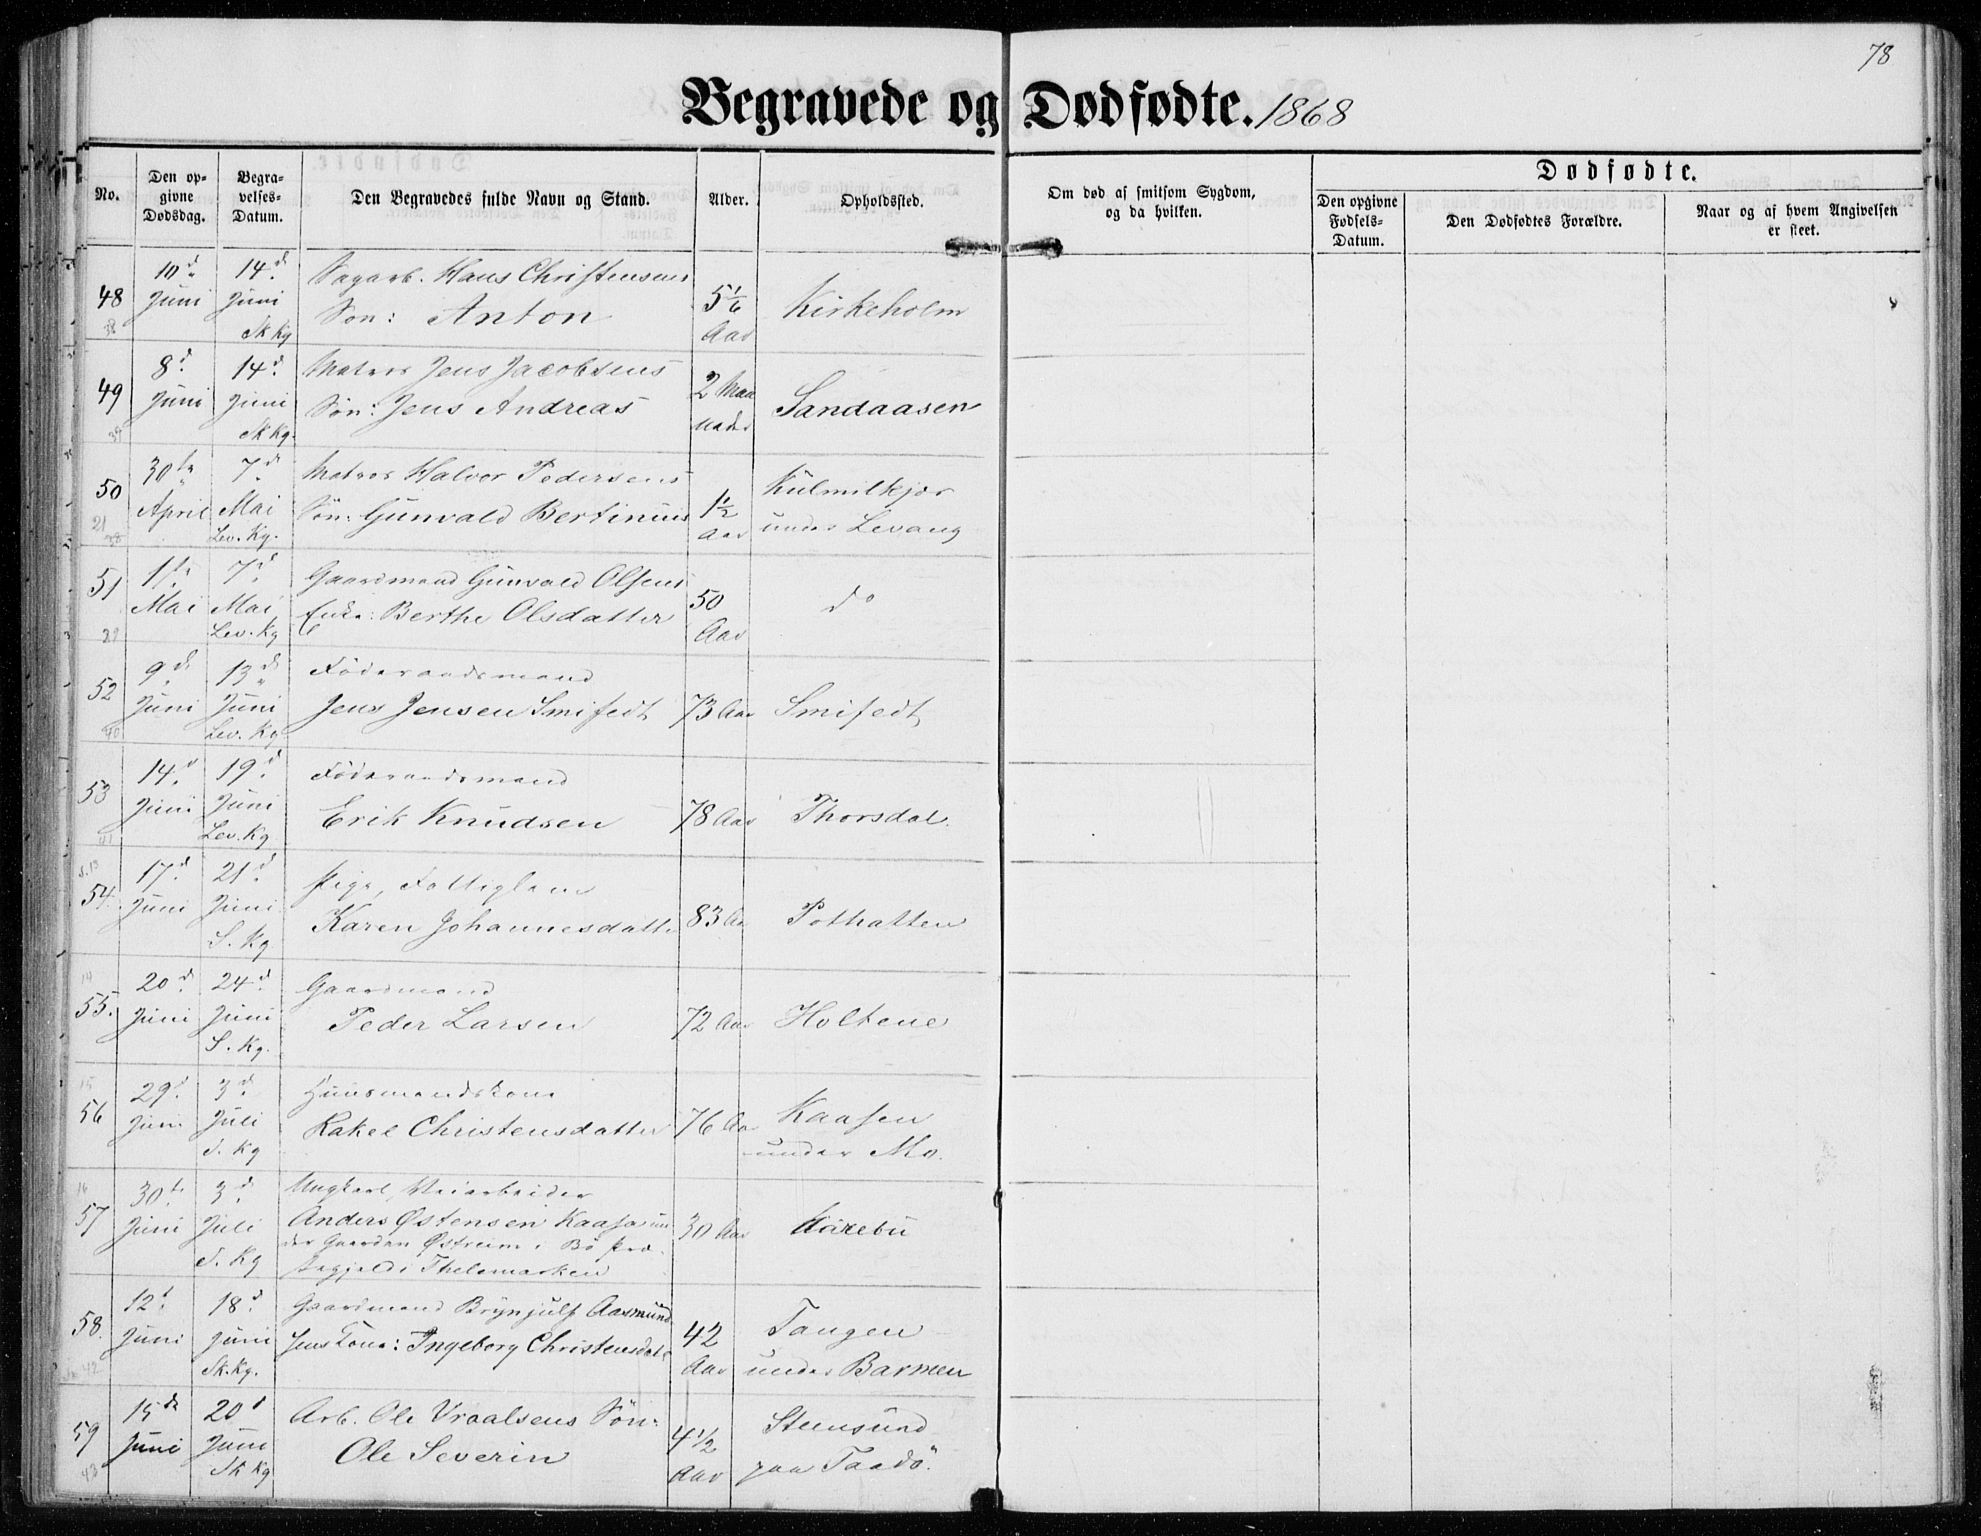 78
Begravede og Dødfødte. 1868
No.
Den op-
givne
Dødsdag.
Begra-
velses-
Datum.
Den Begravedes fulde Navn og Stand.
Alder.
Opholdssted.
Om død af smitsom Sygdom,
og da hvilken.
Dødfødte.
Den opgivne
Fødsels-
Datum.
Den Dødfødtes Forældre.
Naar og af hvem Angivelsen
er skeet.
48
10d Juni
14d Juni
Sk Kg
Sagarb. Hans Christensens
Søn: Anton
5 1/6
Aar
Kirkeholm
49
8d Juni
14d Juni
Sk Kg.
Matros Jens Jacobsens
Søn: Jens Andreas
2 Maa
neder
Sandaasen
50
21
30te April
7d Mai
Lev. Kg.
Matros Halvor Pedersens
Søn: Gunvald Bertinius
1 1/2
Aar
Kulmilkjær
under Levang
51
1te Mai
7d Mai
Lev. Kg
Gaardmand Gunvald Olsens
Enke: Berthe Olsdatter
50
Aar
do
52
40
9de Juni
13de Juni
Lev. Kg
Føderaadsmand
Jens Jensen Smifedt
73 Aar
Smifedt
53
41
14d Juni
19d Juni
Lev. Kg
Føderaadsmand
Erik Knudsen
78 Aar
Thorsdal.
S. 13
54.
17d Juni
21d Juni
S. Kg
Pige, Fattiglem
Karen Johannesdatte
83 Aa
Pothatten
14
55.
20d Juni
24d Juni
S. Kg.
Gaardmand
Peder Larsen
72 Aar
Holtene
15
56
29d Juni
3d Juli
S. Kg
Huusmandskone
Rakel Christensdatter
76 Aar
Kaasen
under Mo.
16
57
30te Juni
3d Juli
S. Kg
Ungkarl, Veiarbeider
Anders Østensen Kaasa un
der Gaarden Østreim i Bø Præ-
stegjeld i Thelemarken
30 Aar
58.
42
12t Juni
18d Juni
Sk. Kg.
Gaardmand Brynjulf Aasmund
sens Kone: Ingeborg Christensdat
42
Aar
Tangen
under Barmen
59
43
15de Juni
20d Juni
Sk Kg
Arb. Ole Vraalsens Søn:
Ole Severin
4 1/2
Aar
Steensund
paa Taadö.